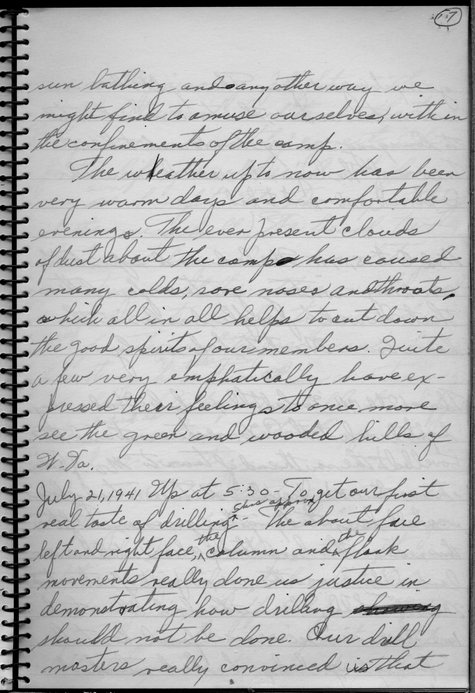 17
sun bathing and any other way we
might find to amuse ourselves, within
the confinements of the camp.
The weather up to now has been
very warm days and comfortable
evenings. The ever present clouds
of dust about the camp has caused
many colds, sore noses and throats,
which all in all helps to cut down
the good spirits of our members. Quite
a few very emphatically have ex-
pressed their feelings to once more
see the green and wooded hills of
W. Va.
July 21, 1941 Up at 5:30 - To get our first
real taste of drilling - this The about face
left and right face, the column and the flank
movements really done us justice in
demonstrating how drilling showing
should not be done. Our drill
masters really convinced us that